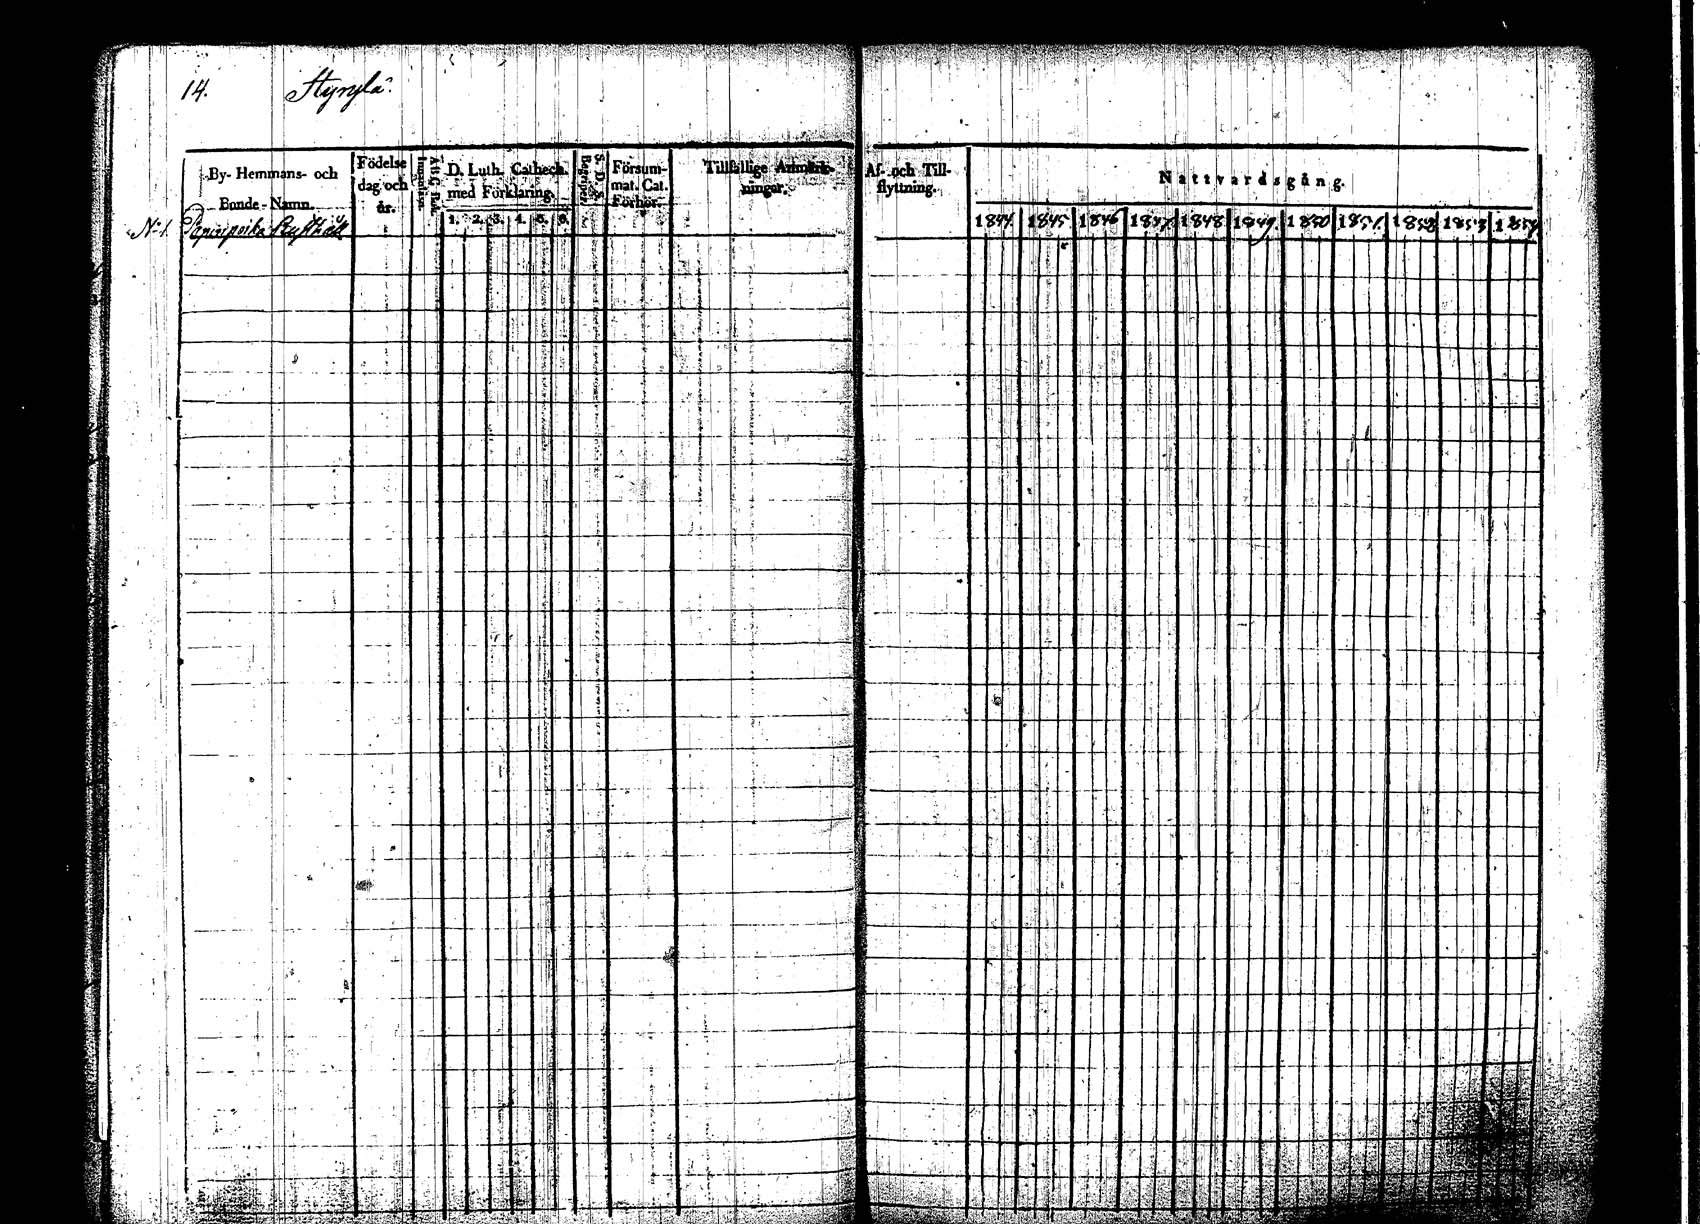 14. Hyrylä.
By- Hemmans- och
Bonde-Namn.
Födelse
dag och
år.
D. Luth. Cathech.
med Förklaring.
1. 2. 3. 4. 5. 6.
S. D. S.
Begrepet
Försum-
mat. Cat.
Förhör.
Tillfällige Anmärk-
ningar.
Af- och Till-
flyttning.
Nattvardsgång.
1844. 1845 1846 1847 1848 1849. 1850 1851. 1852 1853 1854
No 1.